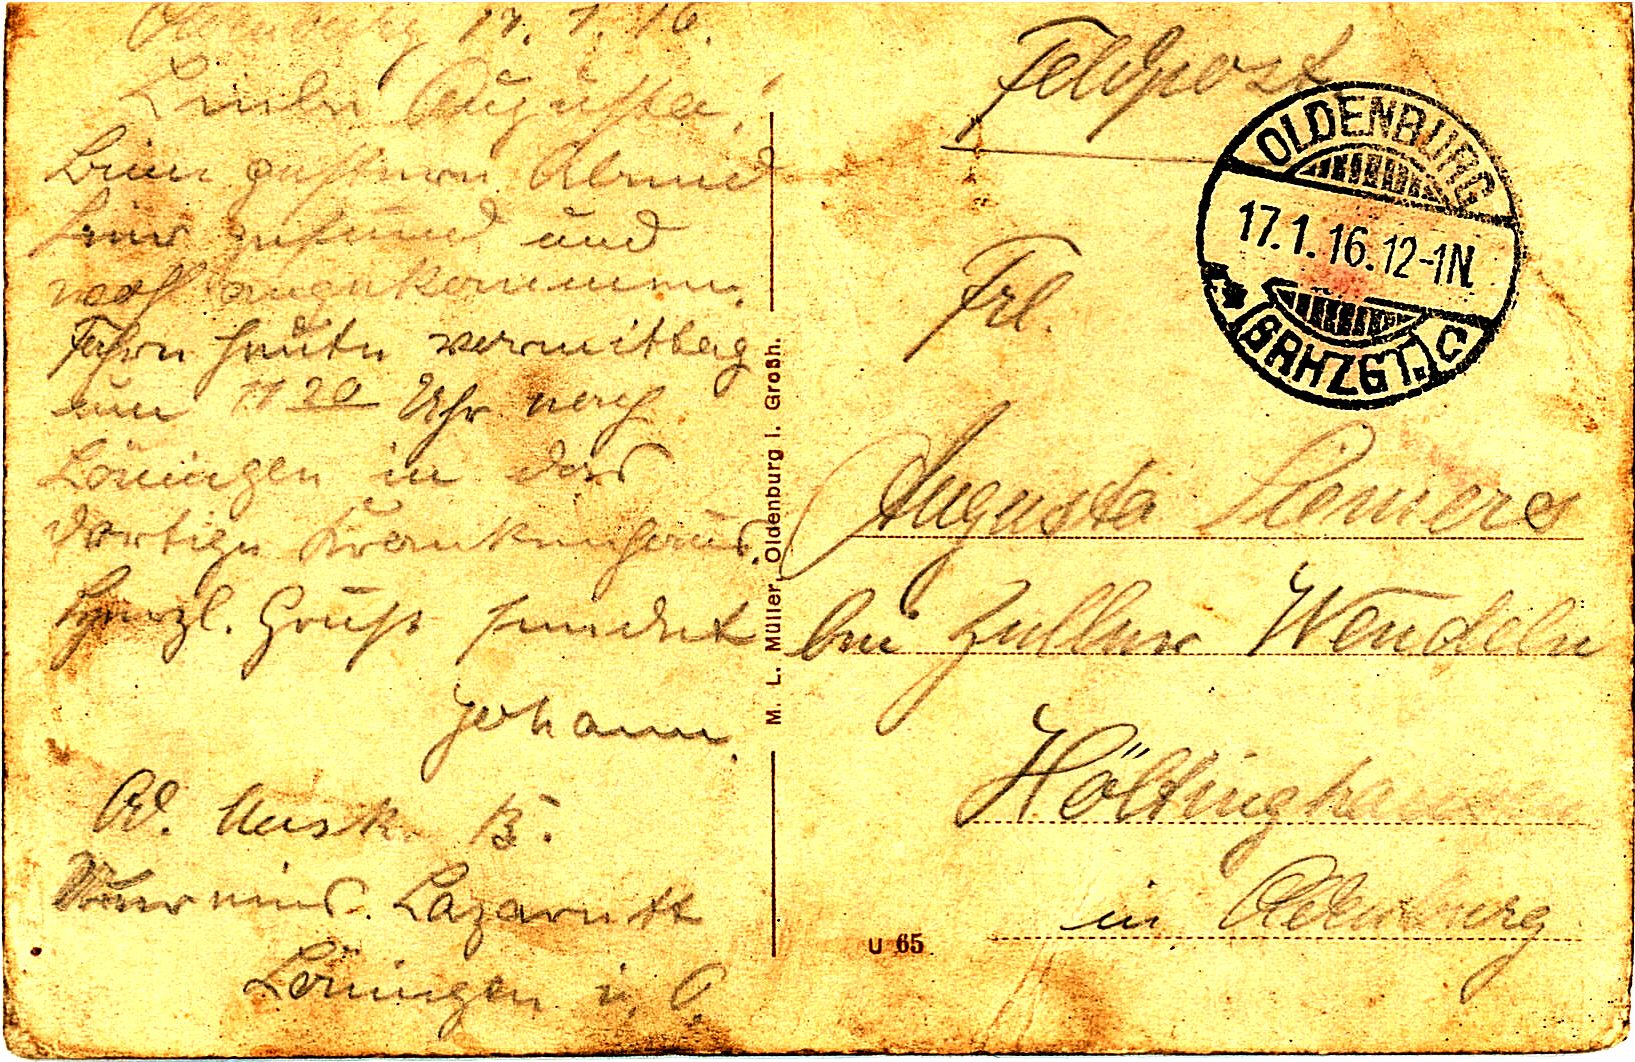 Oldenburg 17.1.16.
Liebe Augusta!
Bin gestern Abend
hier gesund und
wohl angekommen.
Fahre heute vormittag
um 11 20 Uhr nach
Löningen in das
dortige Krankenhaus.
Herzl. Gruß sendet
Johann.
Ad. Musk. B.
Vereins. Lazarett
Löningen i. O.
M. L. Müller, Oldenburg i. Großh.
Feldpost
OLDENBURG
17.1.16.12-1N.
(GRHZGT.) C
Frl.
Augusta Siemers
bei Zeller Wendeln
Höltinghausen
in Oldenburg
U 65